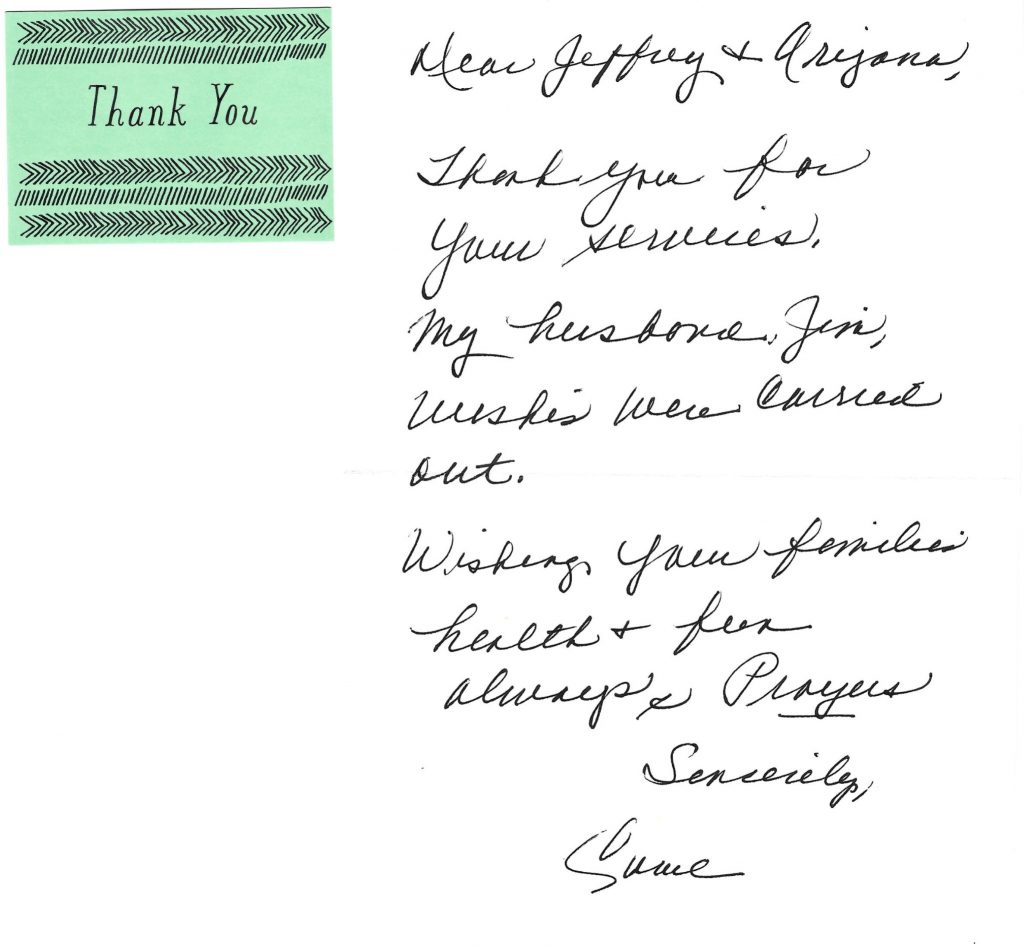 Thank You
Dear Jeffrey & Arizona,
Thank you for
your services.
My husband, Jim,
wishes were carried
out.
Wishing your families
health & fun
always & Prayers
Sincerely,